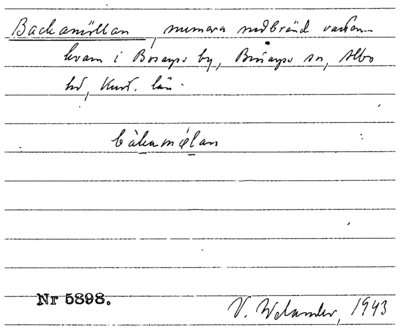 Backamöllan, numera nedbränd vatten-
kvarn i Brösarps by, Brösarps sn, Albo
hd, Krist. län.
bákamǫ́lan
Nr 5898.
V. Welander, 1943